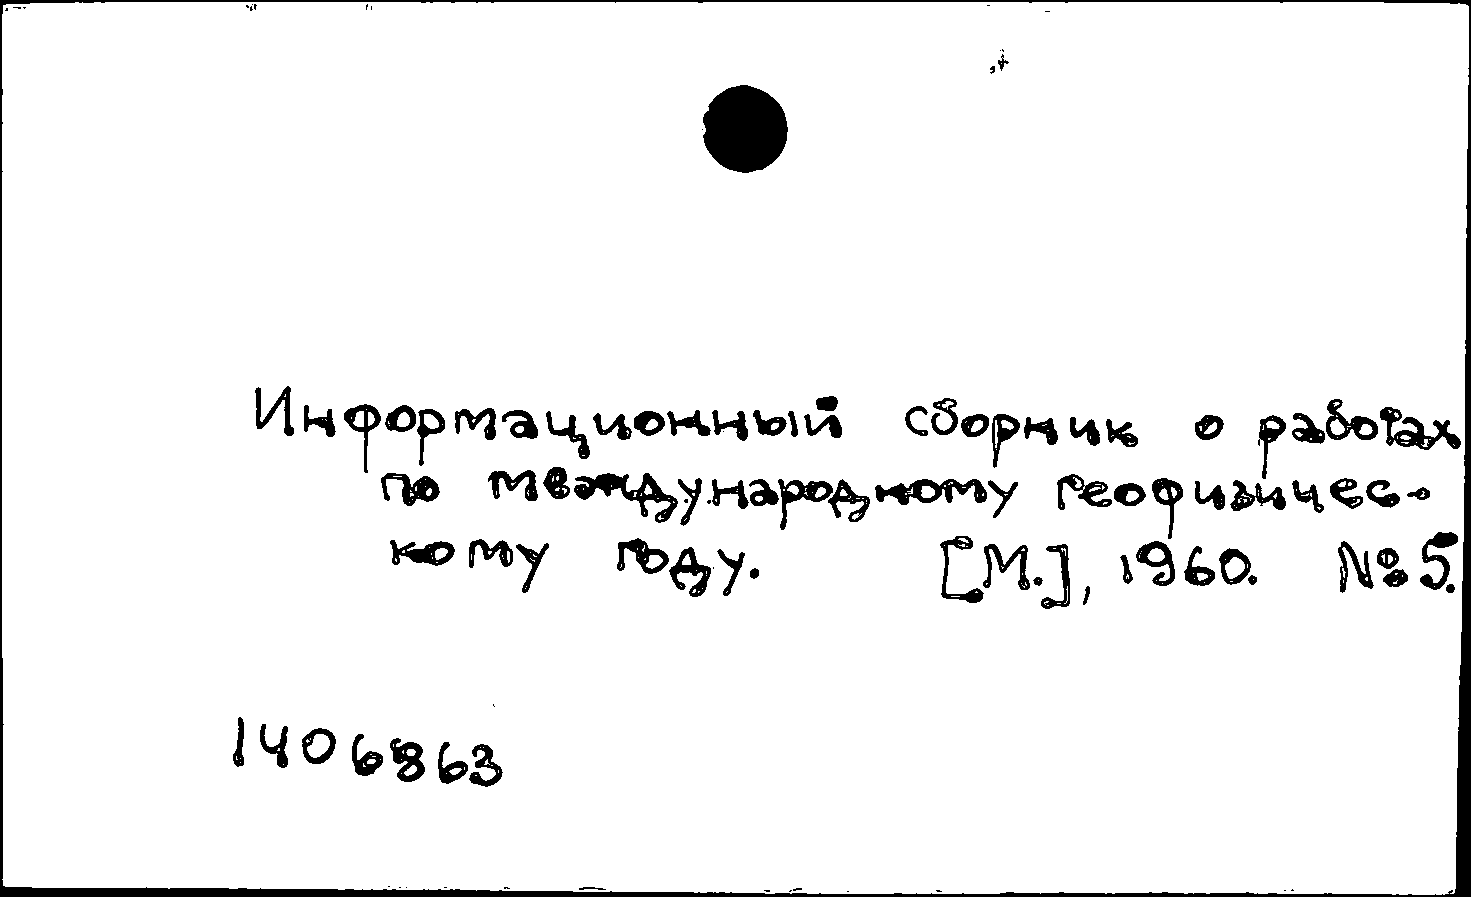 Информационный сборник о работах
по международному геофизичес-
кому году. [М.], 1960. № 5.
1406863